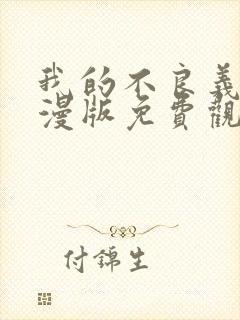 我的不良義
漫版免費觀
付錦生